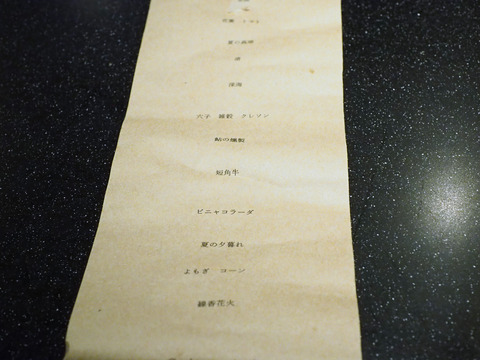 トマト
夏の
深海
穴子 雑穀 クレソン
鮎の燻製
短角牛
ピニャコラーダ
夏の夕暮れ
よもぎ コーン
線香花火